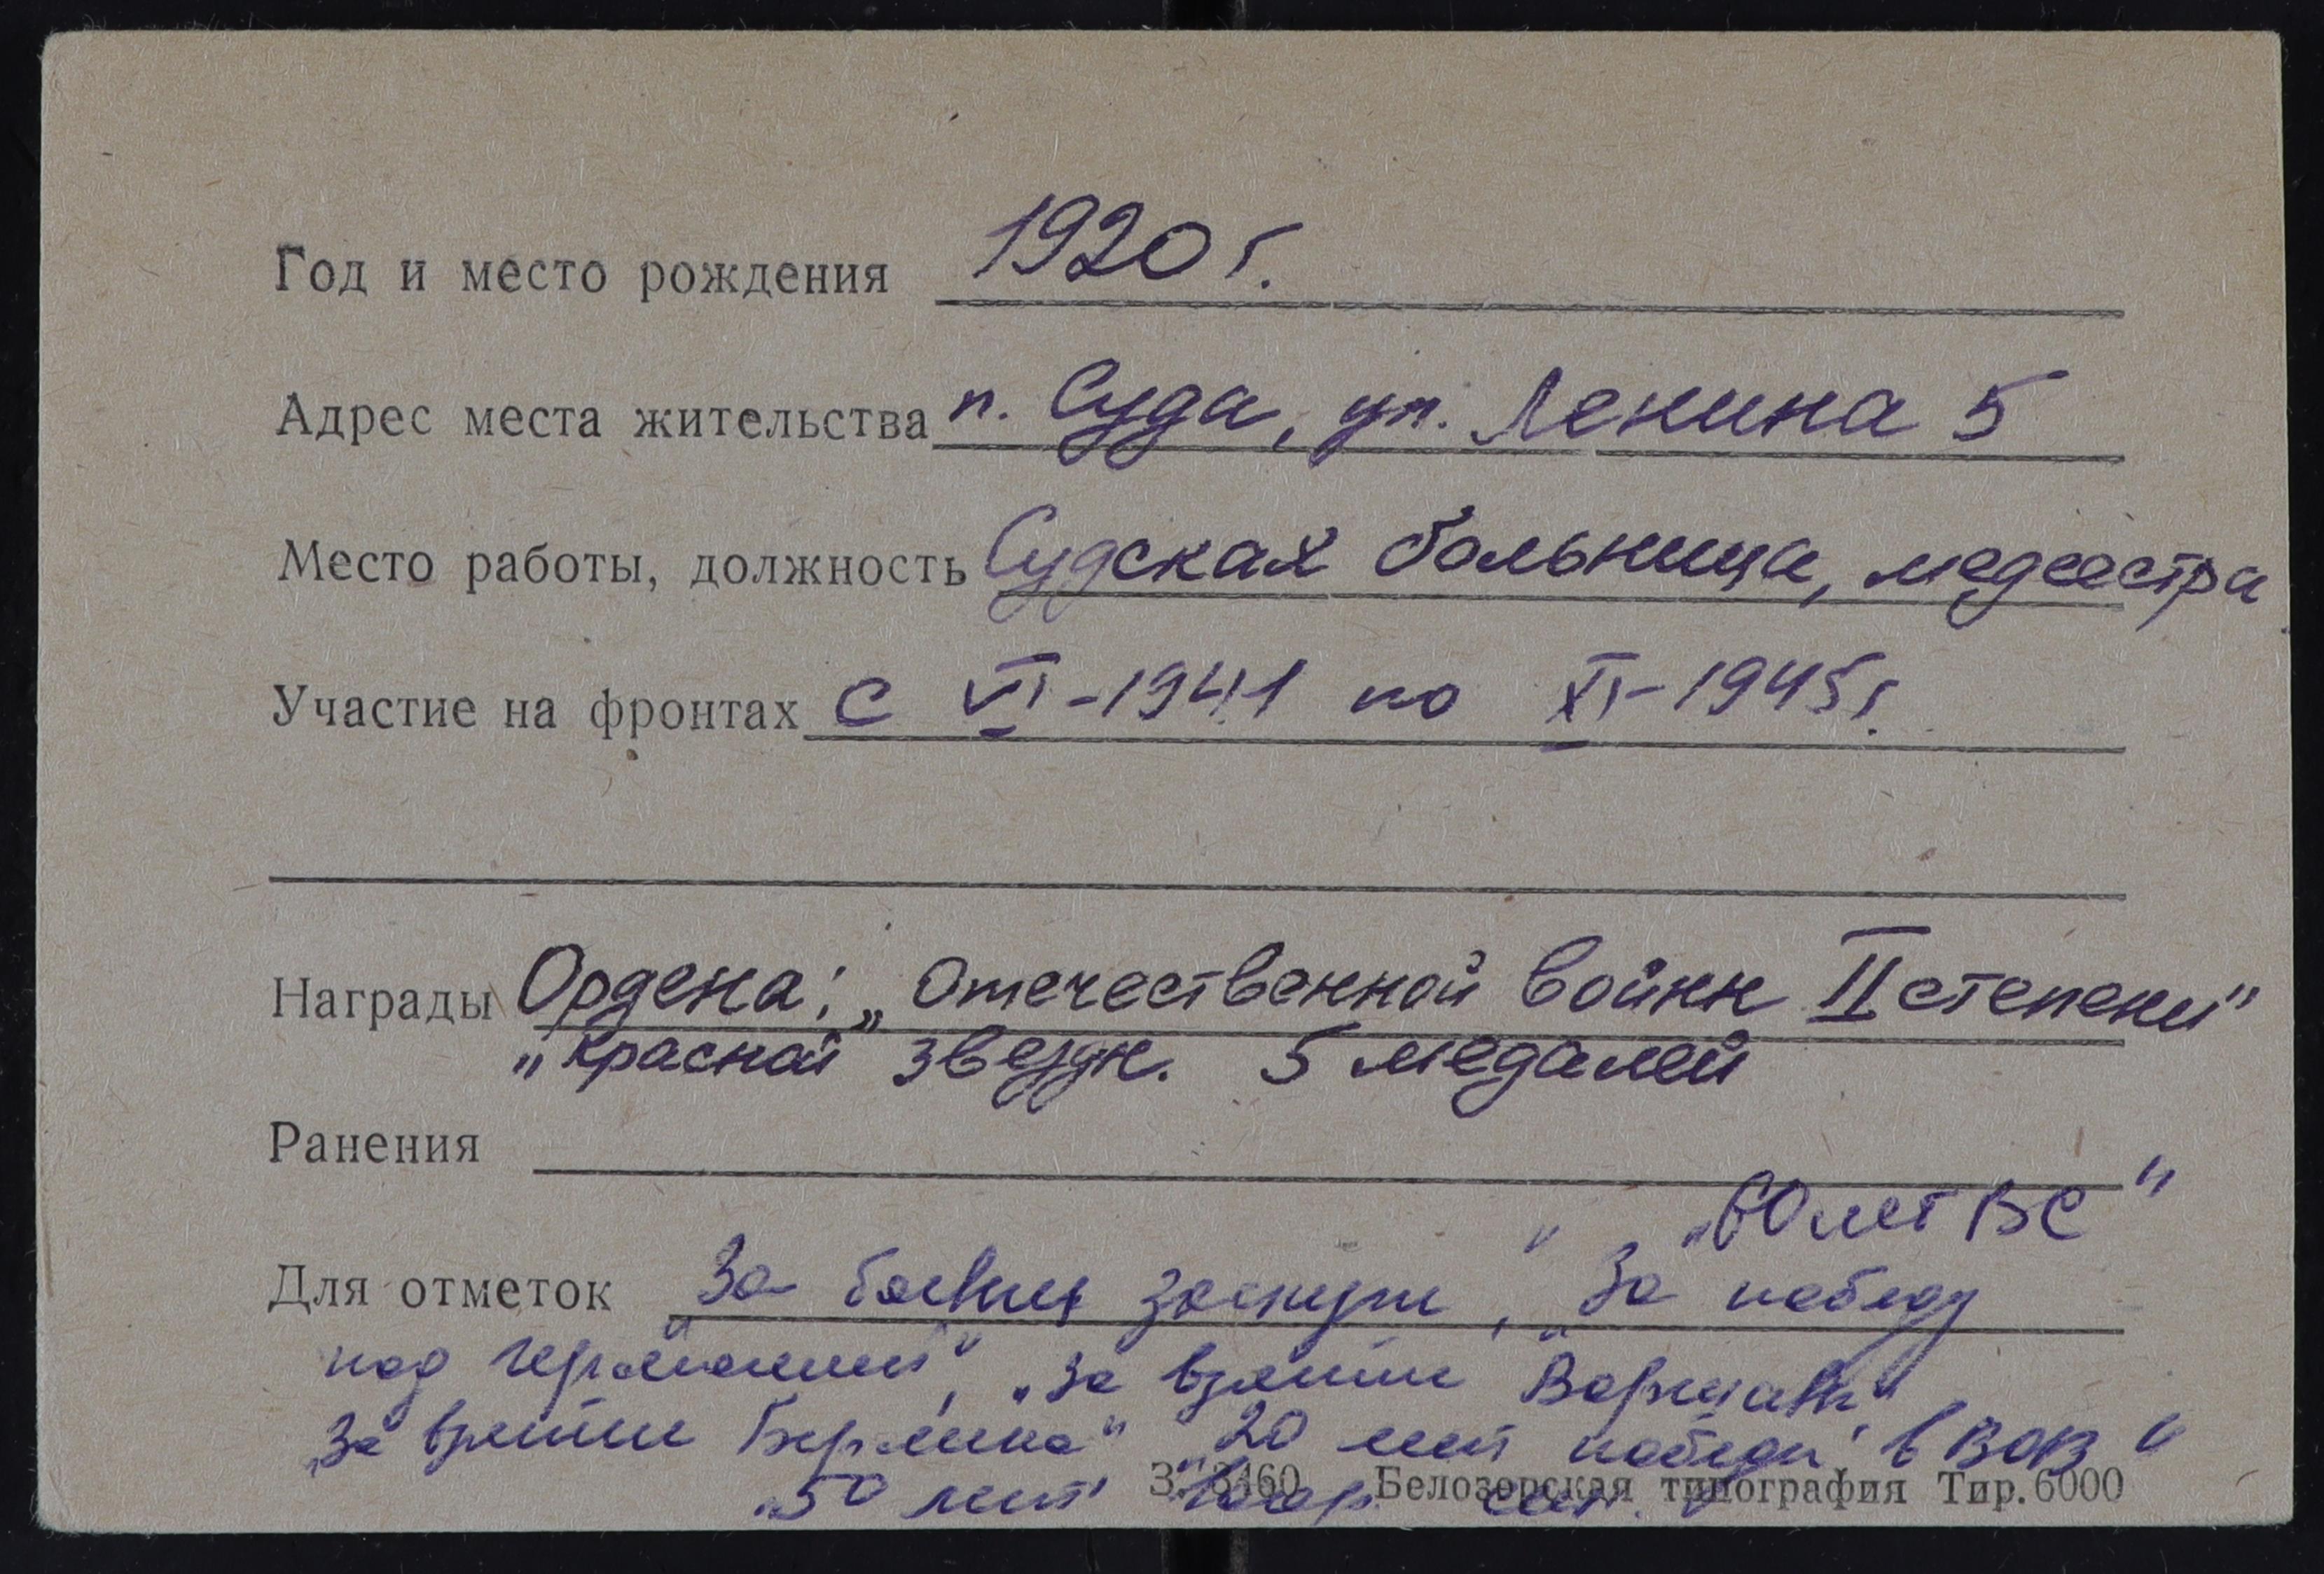 Год и место рождения 1920 г.
Адрес места жительства п. Суда, ул. Ленина 5
Место работы, должность Судская больница, медсестра
Участие на фронтах с VI-1941 по XI-1945 г.
Награды Ордена: „Отечественной войны II степени"
„Красной звезды. 5 медалей
Ранения
„60 лет ВС"
Для отметок „За боевые заслуги", „За победу
над германией", „За взятие Варшавы"
„За взятие Берлина" „20 лет победы в ВОВ"
„50 лет Воор. сил."
З. 3460 Белозерская типография Тир. 6000